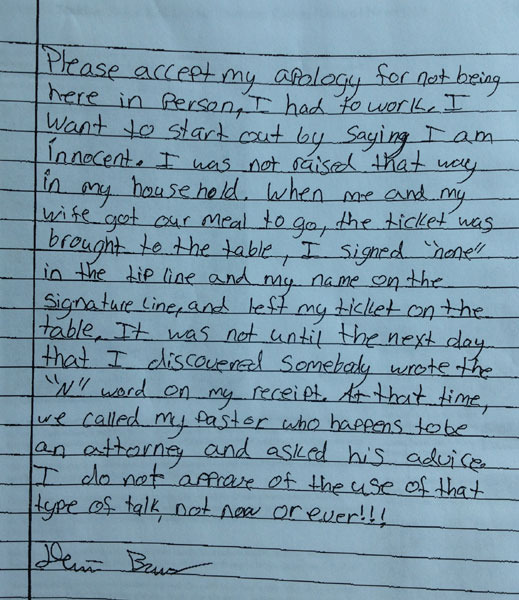 Please accept my apology for not being
here in person, I had to work. I
want to start out by saying I am
innocent. I was not raised that way
in my household. When me and my
wife got our meal to go, the ticket was
brought to the table, I signed "none"
in the tip line and my name on the
signature line, and left my ticket on the
table. It was not until the next day
that I discovered somebody wrote the
"N" word on my receipt. At that time,
we called my pastor who happens to be
an attorney and asked his advice.
I do not approve of the use of that
type of talk, not now or ever!!!